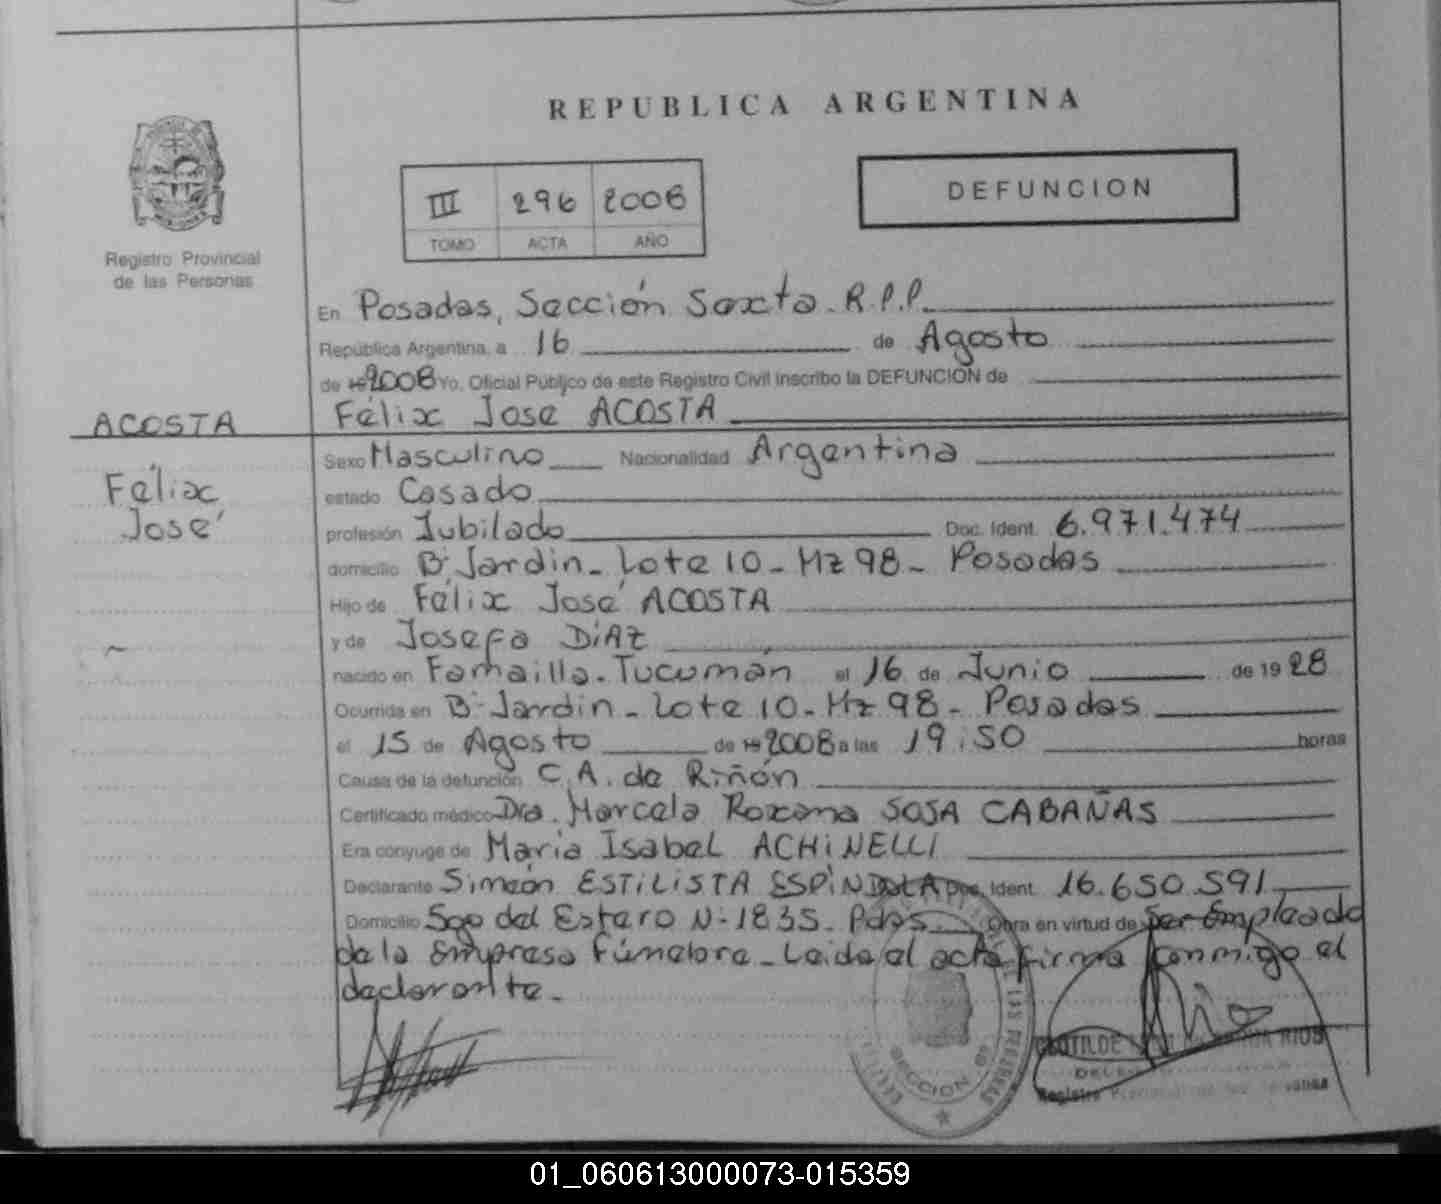 REPUBLICA ARGENTINA
III 296 2008
TOMO ACTA AÑO
DEFUNCION
Registro Provincial
de las Personas
En Posadas, Sección Sexta. R.P.P.
República Argentina, a 16 de Agosto
de 19 2008 Yo, Oficial Público de este Registro Civil inscribo la DEFUNCION de
Félix Jose ACOSTA
ACOSTA
Félix
José
Sexo Masculino Nacionalidad Argentina
estado Casado
profesión Jubilado Doc. Ident. 6.971.474
domicilio Bº Jardin - Lote 10 - Mz 98 - Posadas
Hijo de Félix José ACOSTA
y de Josefa DíAZ
nacido en Famailla - Tucumán el 16 de Junio de 19 28
Ocurrida en Bº Jardin - Lote 10 - Mz 98 - Posadas
el 15 de Agosto de 19 2008 a las 19:50 horas
Causa de la defunción C.A. de Riñón
Certificado médico Dra. Marcela Roxana SOSA CABAÑAS
Era cónyuge de Maria Isabel ACHiNELLI
Declarante Simeón ESTiLiSTA ESPíNDOLA Doc. Ident. 16.650.591
Domicilio Sgo del Estero Nº 1835 - Pdas Obra en virtud de Ser Empleado
de la Empresa Fúnebre - Leida el acta firma conmigo el
declarante -
SECCION
CLOTILDE RIOS
Registro
01_060613000073-015359